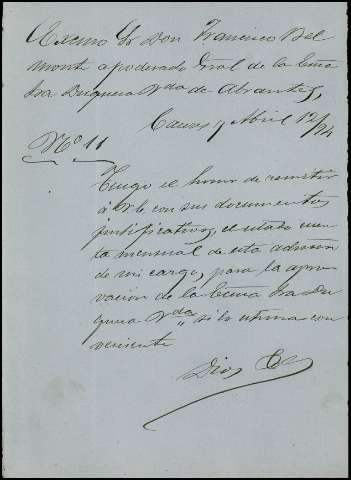 Excmo Sr Don Francisco Del
monte apoderado Gral de la Excma
Sra Duquesa Vda de Abrantes,
Abril 12/74
No 11
Tengo el honor de remitir
á V.e con sus documentos
justificativos, el estado cuen
ta mensual de esta admon
de mi cargo, para la apro
vacion de la Excma Sra Du
quesa Vda si lo estima con
veniente
Dios &